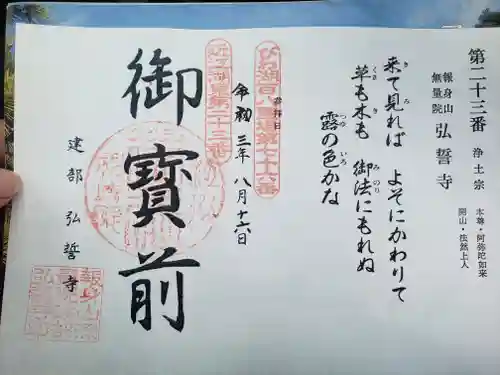 第二十三番 浄土宗 本尊・阿弥陀如来
報身山 無量院 弘誓寺 開山・法然上人
来て見れば よそにかわりて
草も木も 御法にもれぬ
露の色かな
びわ湖百八霊場第七十六番
奉拝日
令和三年八月十六日
近江湖東第二十三番
御寶前
建部 弘誓寺